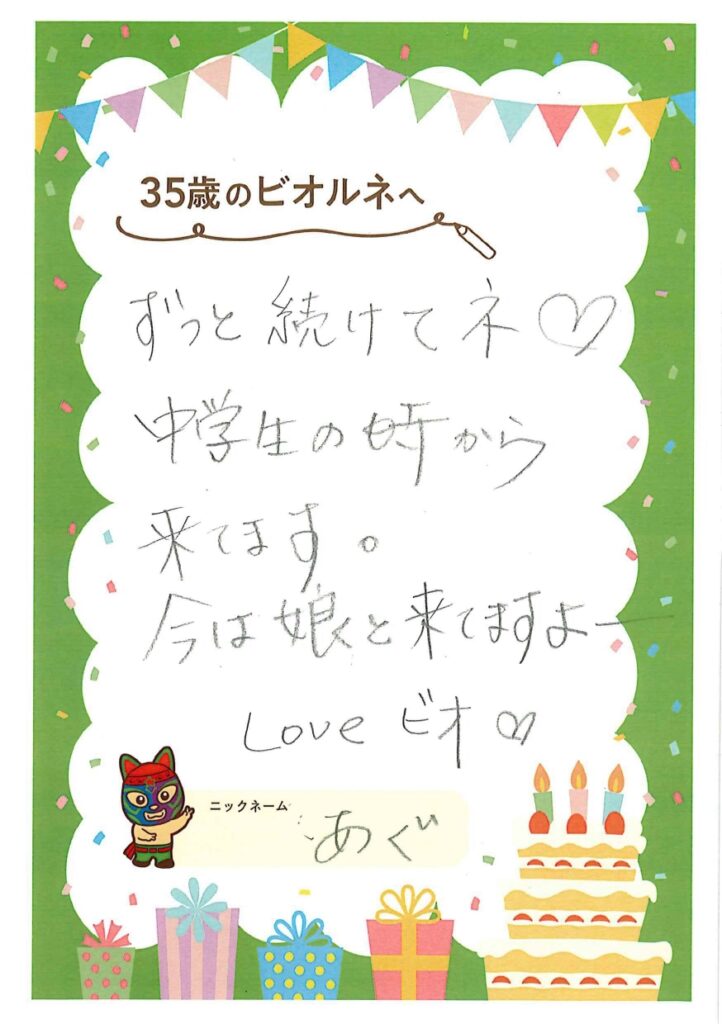 35歳のビオルネへ
ずっと続けてネ♡
中学生の時から
来てます。
今は娘と来てますよー
Love ビオ♡
ニックネーム
あぐ